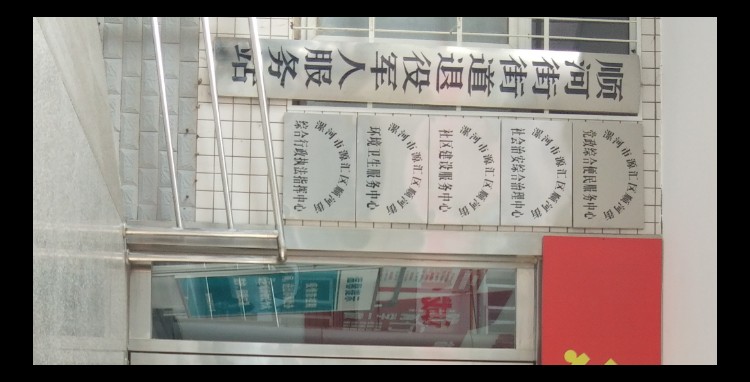 顺河街街道退役军人服务站
漯河市源汇区顺河街
党政综合便民服务中心
漯河市源汇区顺河街
社会治安综合治理中心
漯河市源汇区顺河街
社区建设服务中心
漯河市源汇区顺河街
环境卫生服务中心
漯河市源汇区顺河街
综合行政执法指挥中心